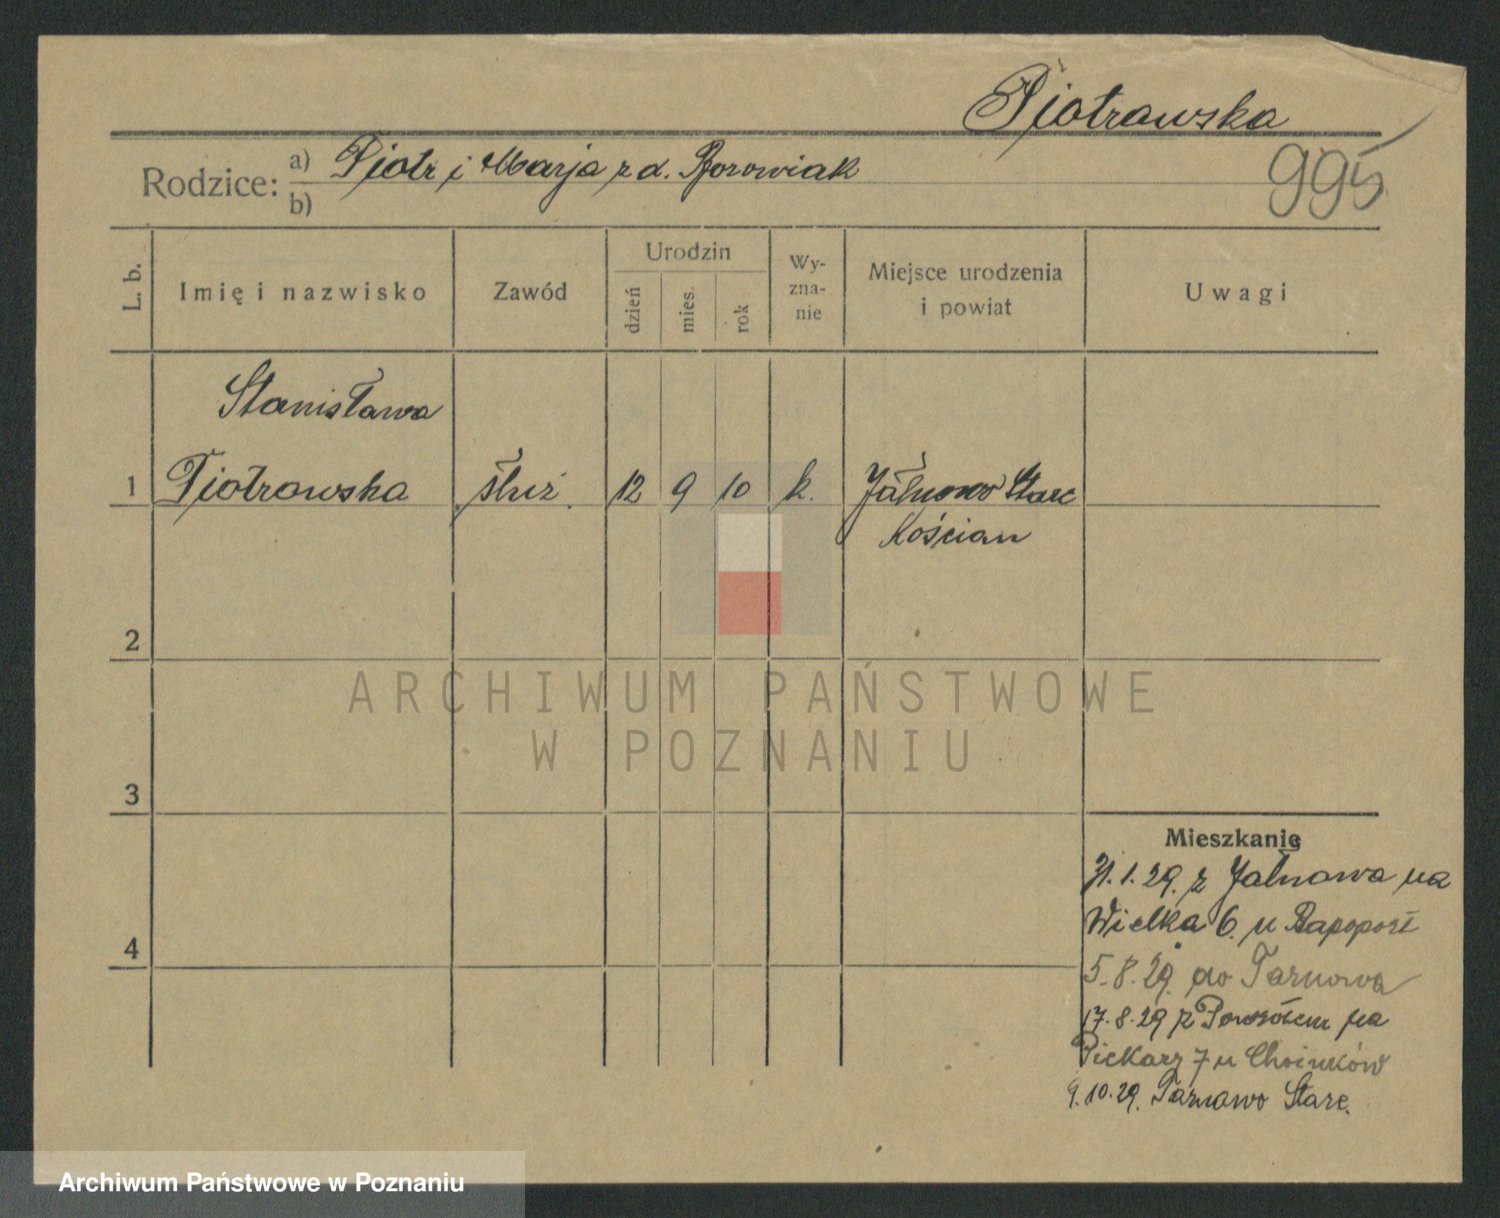 Piotrowska
995
Rodzice: a) Piotr i Marja z d. Borowiak
b)
L. b.
Imię i nazwisko
Zawód
Urodzin
dzień
mies.
rok
Wy-
zna-
nie
Miejsce urodzenia
i powiat
Uwagi
Stanisława
1 Piotrowska służ. 12 9 10 k. Stare
Kościan
2
3
4
ARCHIWUM PAŃSTWOWE
W POZNANIU
Mieszkanie
31.1.29. z na
Wielka 6. u Rapoport
5.8.29. do Tarnowa
17.8.29 z Powrótem na
Piekary 7 u Choinków
9.10.29. Tarnowo Stare.
Archiwum Państwowe w Poznaniu